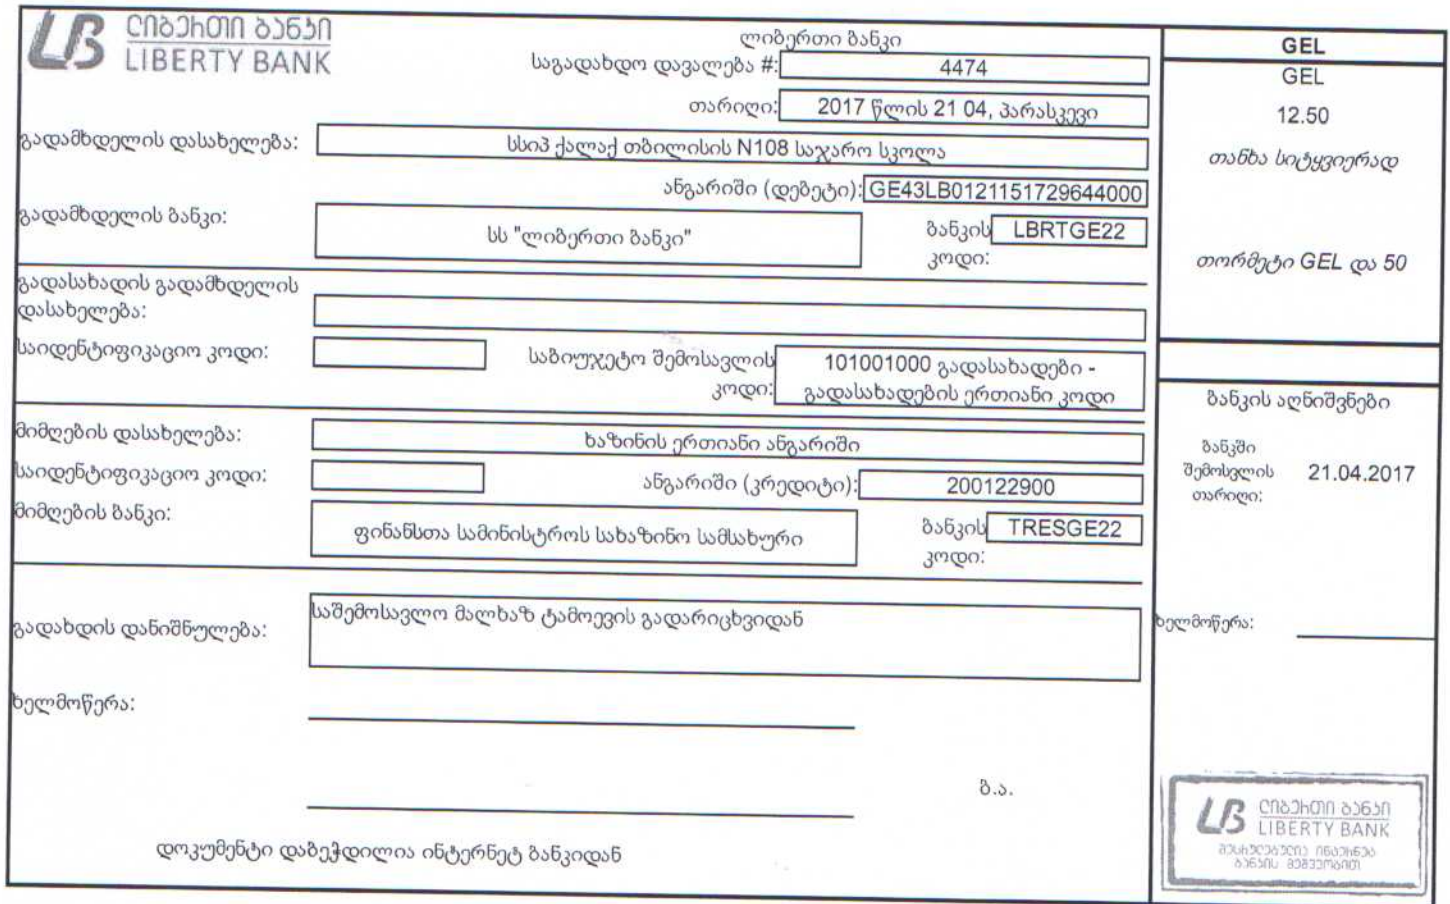 ლიბერთი ბანკი
LIBERTY BANK
ლიბერთი ბანკი
საგადახდო დავალება #: 4474
თარიღი: 2017 წლის 21 04, პარასკევი
გადამხდელის დასახელება: სსიპ ქალაქ თბილისის N108 საჯარო სკოლა
ანგარიში (დებეტი): GE43LB0121151729644000
გადამხდელის ბანკი: სს "ლიბერთი ბანკი" ბანკის კოდი: LBRTGE22
გადასახადის გადამხდელის
დასახელება:
საიდენტიფიკაციო კოდი: საბიუჯეტო შემოსავლის კოდი: 101001000 გადასახადები -
გადასახადების ერთიანი კოდი
მიმღების დასახელება: ხაზინის ერთიანი ანგარიში
საიდენტიფიკაციო კოდი: ანგარიში (კრედიტი): 200122900
მიმღების ბანკი: ფინანსთა სამინისტროს სახაზინო სამსახური ბანკის კოდი: TRESGE22
გადახდის დანიშნულება: საშემოსავლო მალხაზ ტამოევის გადარიცხვიდან
ხელმოწერა:
ბ.ა.
დოკუმენტი დაბეჭდილია ინტერნეტ ბანკიდან
GEL
GEL
12.50
თანხა სიტყვიერად
თორმეტი GEL და 50
ბანკის აღნიშვნები
ბანკში
შემოსვლის 21.04.2017
თარიღი:
ხელმოწერა:
ლიბერთი ბანკი
LIBERTY BANK
შესრულებულია ინტერნეტ
ბანკის მეშვეობით